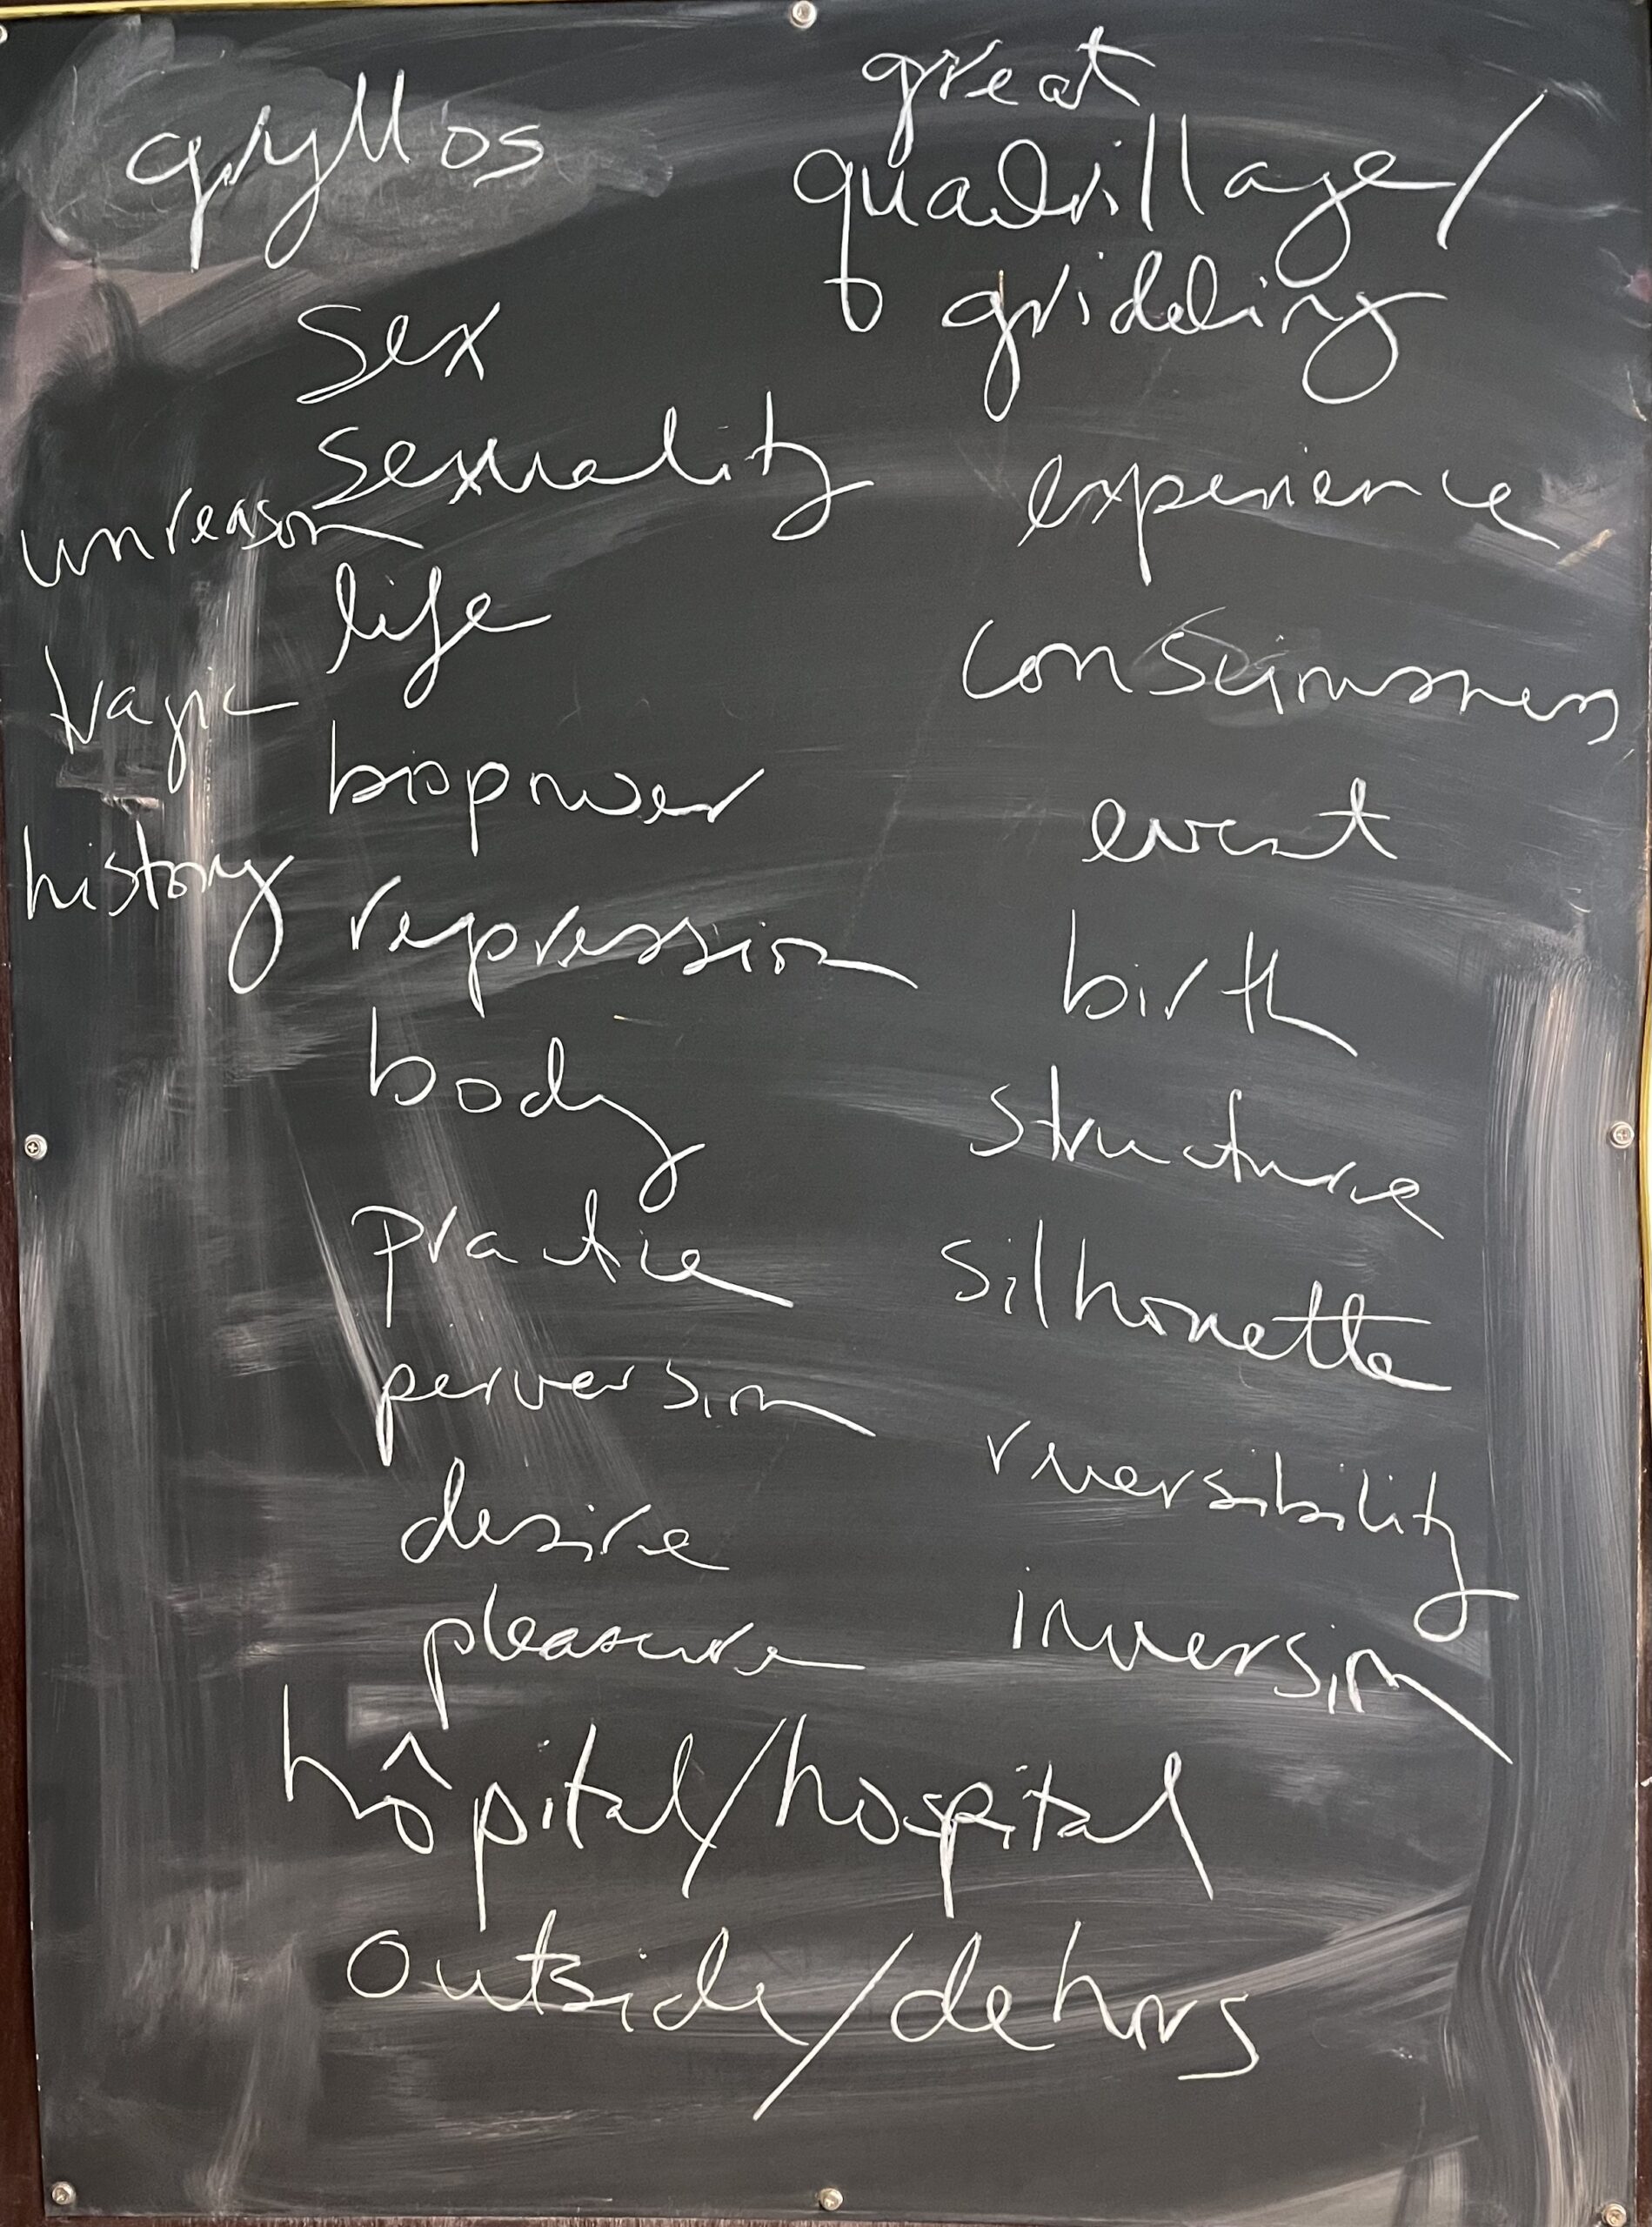 gryllos
great
quadrillage/
gridding
sex
sexuality
unreason
life
tragic
biopower
history
repression
body
practice
perversion
desire
pleasure
experience
consciousness
event
birth
structure
silhouette
reversibility
inversion
hôpital/hospital
outside/dehors